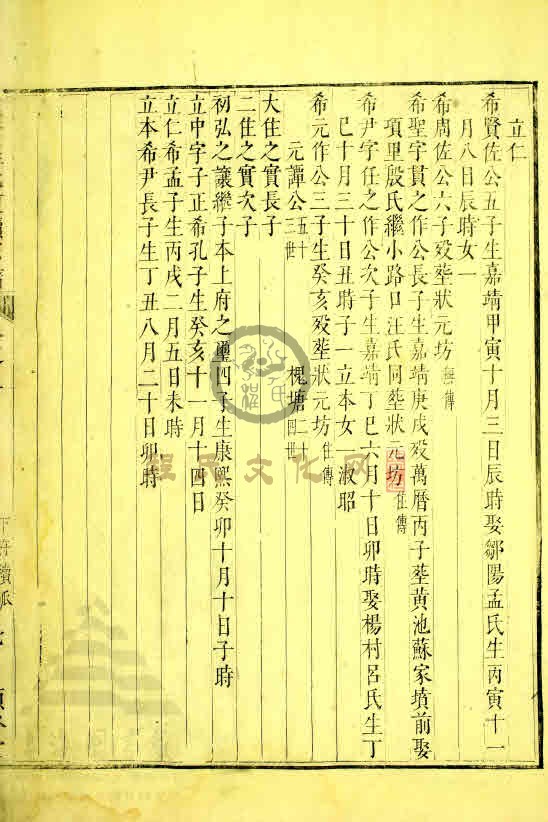 立仁
希賢佐公五子生嘉靖甲寅十月三日辰時娶鄒陽孟氏生丙寅十一
月八日辰時女一
希周佐公六子歿塟狀元坊無傳
希聖字貫之作公長子生嘉靖庚戌歿萬曆丙子塟黄池蘇家墳前娶
項里殷氏繼小路口汪氏同塟狀元坊仕傳
希尹字任之作公次子生嘉靖丁巳六月十日卯時娶楊村呂氏生丁
巳十月三十日丑時子一立本女一淑昭
希元作公三子生癸亥歿塟狀元坊仕傳
元譚公五十三世 槐塘二十四世
大住之實長子
二住之實次子
初弘之讓繼子本上府之璽四子生康熙癸卯十月十日子時
立中字子正希孔子生癸亥十一月十四日
立仁希孟子生丙戌二月五日未時
立本希尹長子生丁丑八月二十日卯時
程氏文化网